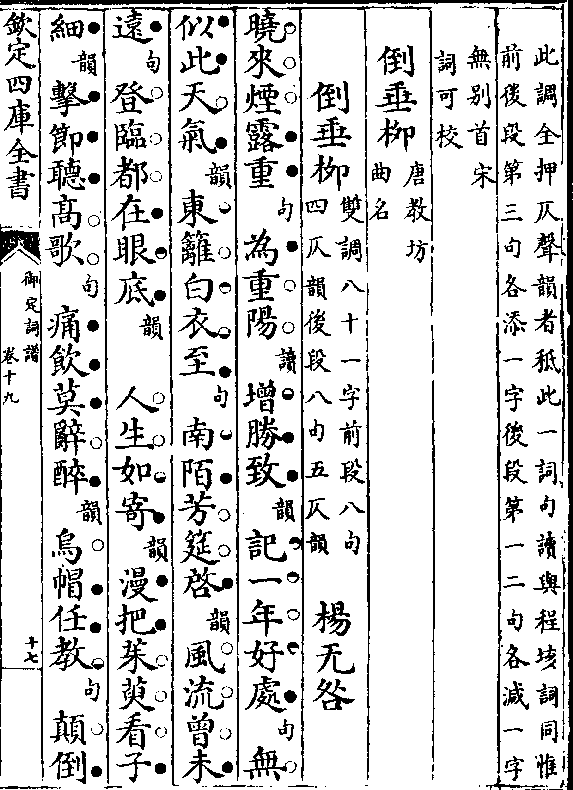 此調全押仄聲韻者秪此一詞句讀與程垓詞同惟
前後段第三句各添一字後段第一二句各減一字
無别首宋
詞可校
倒垂栁
唐教坊
曲名
倒垂栁
雙調八十一字前段八句
四仄韻後段八句五仄韻
楊无咎
曉來煙露重句為重陽讀增勝致韻記一年好處句無
似此天氣韻東籬白衣至句南陌芳筵啓韻風流曾未
遠句登臨都在眼底韻人生如寄韻漫把茱萸看子
細韻擊節聽高歌句痛飲莫辭醉韻烏帽任教句顛倒
欽定四庫全書
御定詞譜
卷十九
十七